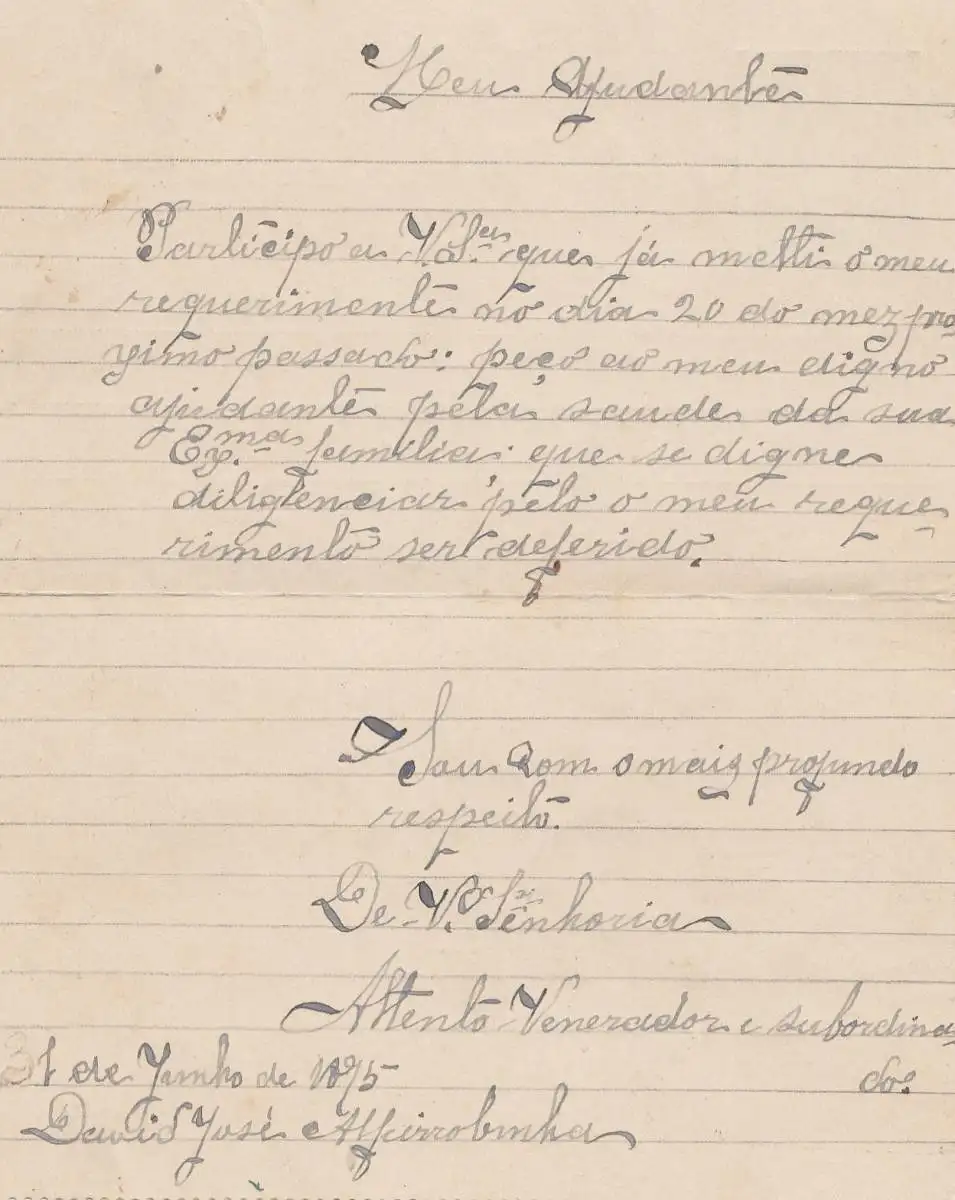 Meu Ajudante
Participo a V. S.as que já metti o meu
requerimento no dia 20 do mez pro-
ximo passado: peço ao meu digno
ajudante pela saude da sua
Ex.mas familia: que se digne
diligenciar pelo o meu reque
rimento ser deferido.
Sou com o mais profundo
respeito.
De V. Senhoria
Attento Venerador e subordina
do.
1 de Junho de 1895
David José